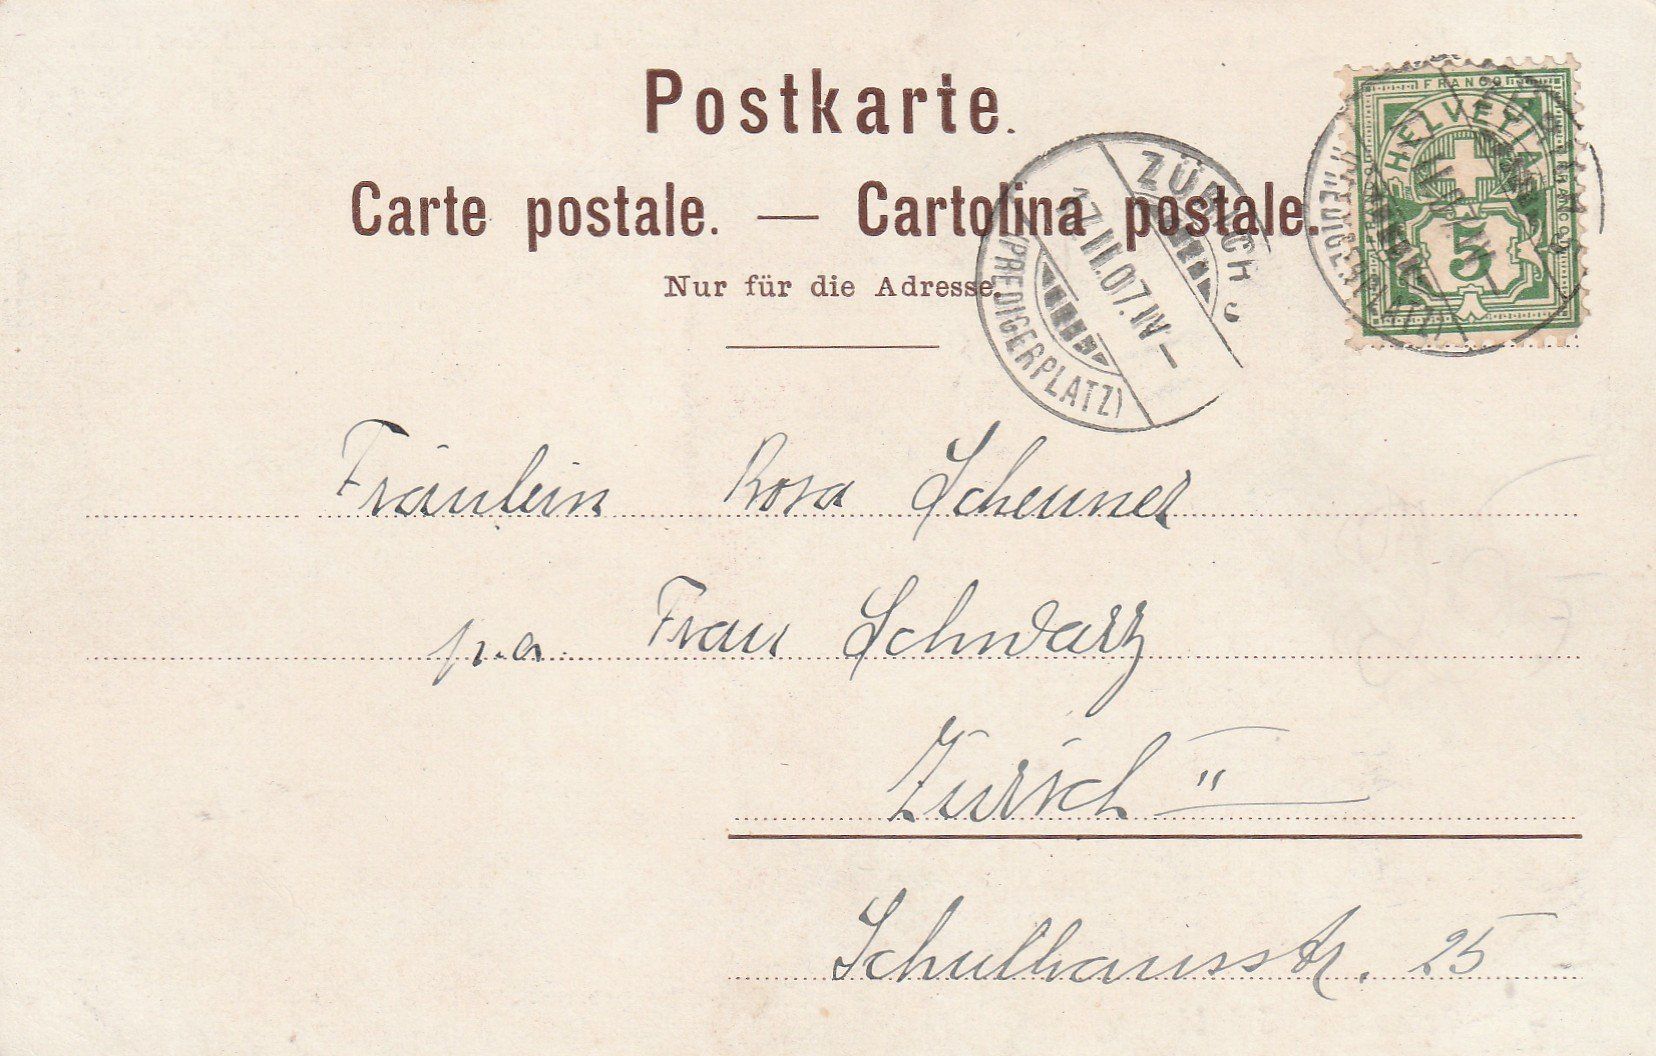 Postkarte.
Carte postale. — Cartolina postale.
Nur für die Adresse.
ZÜRICH
17.III.07.IV–
(PREDIGERPLATZ)
FRANCO
HELVETIA
5
Fräulein Rosa Scheuner
p.a. Frau Schwarz
Zürich II
Schulhausstr. 25